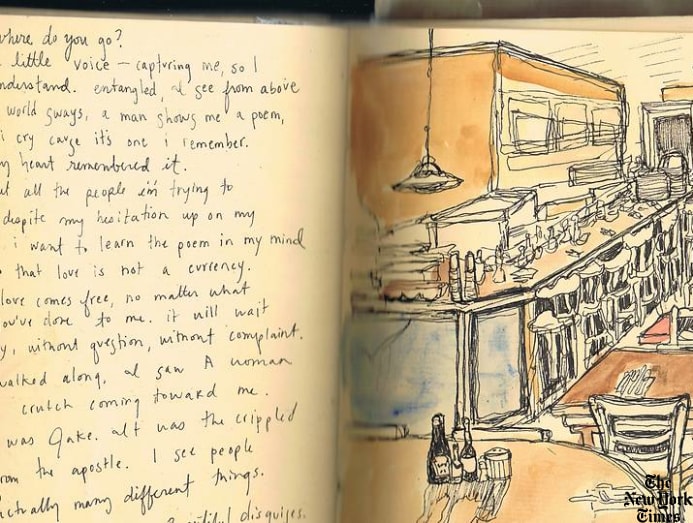 where do you go?
little voice – capturing me, so I
understand. entangled, I see from above
world sways, a man shows me a poem,
i cry cause it's one i remember.
my heart remembered it.
all the people i'm trying to
despite my hesitation up on my
i want to learn the poem in my mind
that love is not a currency.
love comes free, no matter what
you've done to me. it will wait
without question, without complaint.
walked along, I saw A woman
crutch coming toward me.
was Jake. alt was the crippled
from the apostle. I see people
actually many different things.
disguises.
The
New York
Times